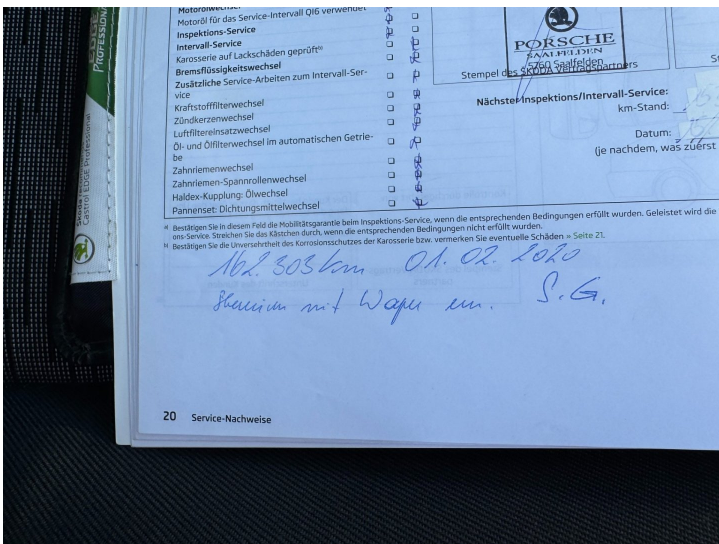 EDGE
PROFESSIONAL
Skoda
Castrol EDGE Professional
Motorölwechsel
Motoröl für das Service-Intervall QI6 verwendet
Inspektions-Service
Intervall-Service
Karosserie auf Lackschäden geprüft b)
Bremsflüssigkeitswechsel
Zusätzliche Service-Arbeiten zum Intervall-Ser-
vice
Kraftstofffilterwechsel
Zündkerzenwechsel
Luftfiltereinsatzwechsel
Öl- und Ölfilterwechsel im automatischen Getrie-
be
Zahnriemenwechsel
Zahnriemen-Spannrollenwechsel
Haldex-Kupplung: Ölwechsel
Pannenset: Dichtungsmittelwechsel
PORSCHE
SAALFELDEN
5760 Saalfelden
Stempel des ŠKODA Vertragspartners
Nächster Inspektions/Intervall-Service:
km-Stand:
Datum:
(je nachdem, was zuerst
a) Bestätigen Sie in diesem Feld die Mobilitätsgarantie beim Inspektions-Service, wenn die entsprechenden Bedingungen erfüllt wurden. Geleistet wird die
ons-Service. Streichen Sie das Kästchen durch, wenn die entsprechenden Bedingungen nicht erfüllt wurden.
b) Bestätigen Sie die Unversehrtheit des Korrosionsschutzes der Karosserie bzw. vermerken Sie eventuelle Schäden » Seite 21.
162.303 km 01.02.2020
mit S.G.
20 Service-Nachweise